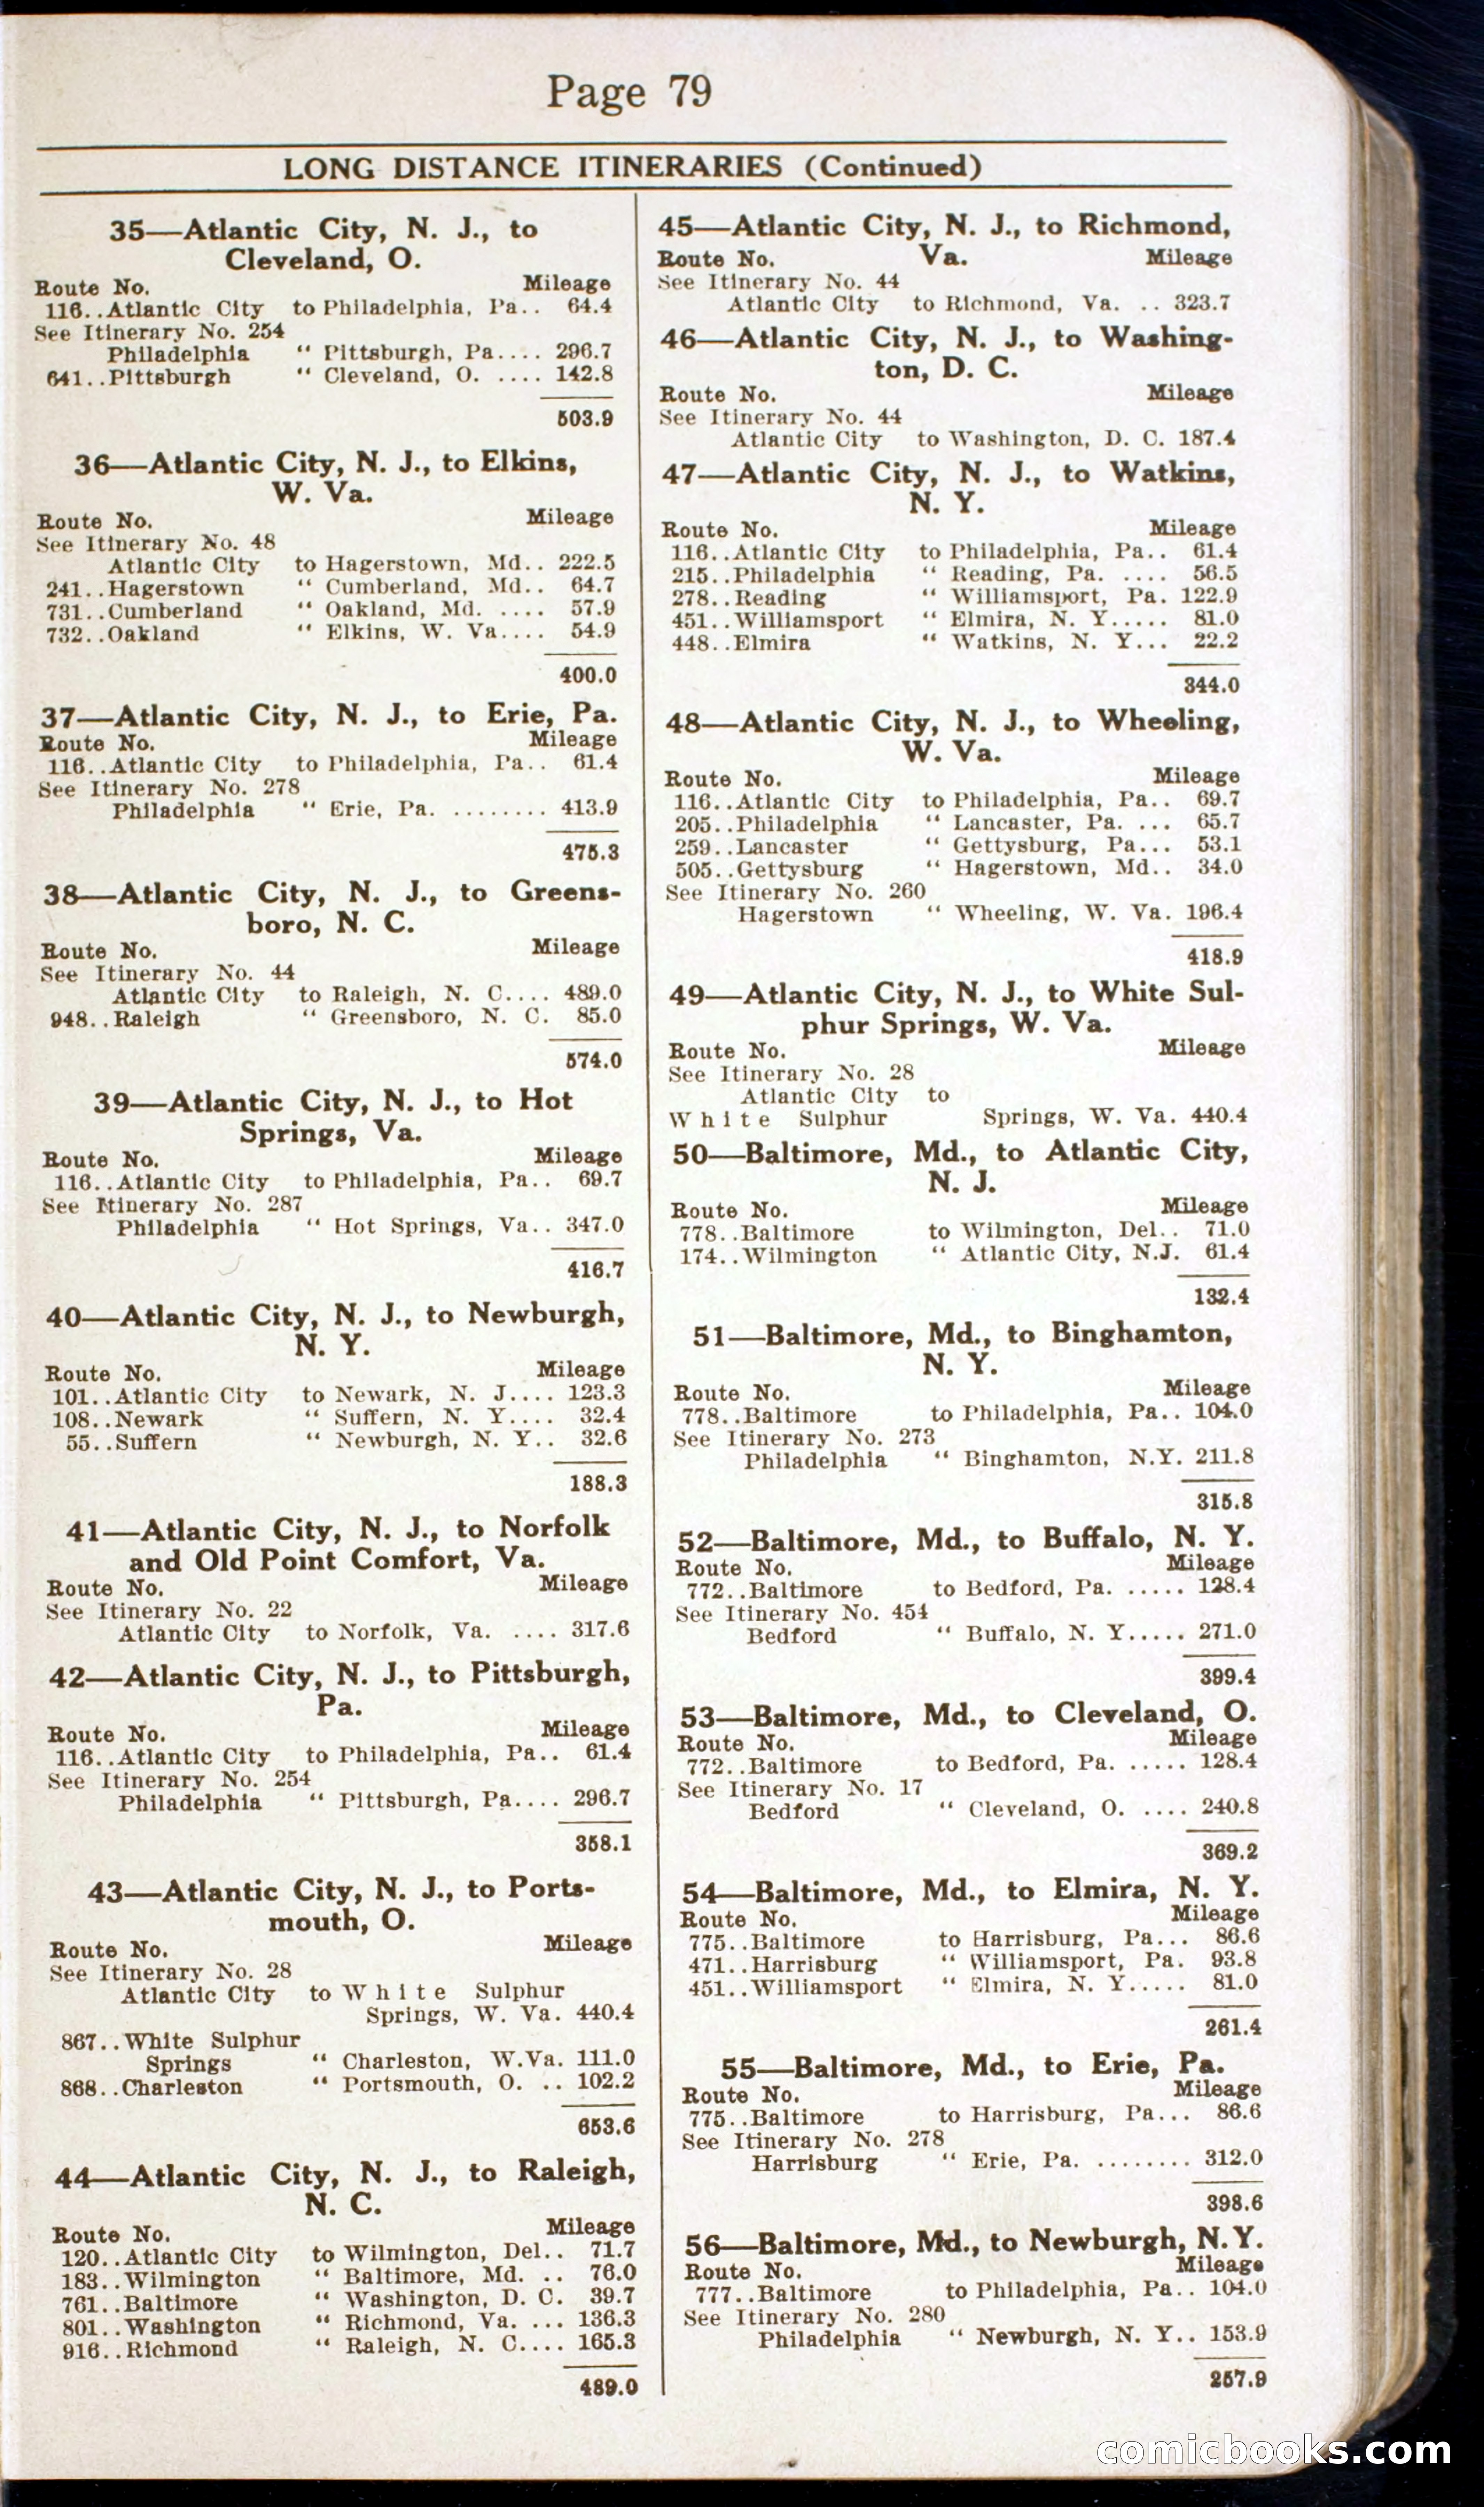 Page 79
LONG DISTANCE ITINERARIES (Continued)
35—Atlantic City, N. J., to
Cleveland, O.
Route No. Mileage
116..Atlantic City to Philadelphia, Pa.. 64.4
See Itinerary No. 254
Philadelphia " Pittsburgh, Pa.... 296.7
641..Pittsburgh " Cleveland, O. .... 142.8
503.9
36—Atlantic City, N. J., to Elkins,
W. Va.
Route No. Mileage
See Itinerary No. 48
Atlantic City to Hagerstown, Md.. 222.5
241..Hagerstown " Cumberland, Md.. 64.7
731..Cumberland " Oakland, Md. .... 57.9
732..Oakland " Elkins, W. Va.... 54.9
400.0
37—Atlantic City, N. J., to Erie, Pa.
Route No. Mileage
116..Atlantic City to Philadelphia, Pa.. 61.4
See Itinerary No. 278
Philadelphia " Erie, Pa. ........ 413.9
475.3
38—Atlantic City, N. J., to Greens-
boro, N. C.
Route No. Mileage
See Itinerary No. 44
Atlantic City to Raleigh, N. C.... 489.0
948..Raleigh " Greensboro, N. C. 85.0
574.0
39—Atlantic City, N. J., to Hot
Springs, Va.
Route No. Mileage
116..Atlantic City to Philadelphia, Pa.. 69.7
See Itinerary No. 287
Philadelphia " Hot Springs, Va.. 347.0
416.7
40—Atlantic City, N. J., to Newburgh,
N. Y.
Route No. Mileage
101..Atlantic City to Newark, N. J.... 123.3
108..Newark " Suffern, N. Y.... 32.4
55..Suffern " Newburgh, N. Y.. 32.6
188.3
41—Atlantic City, N. J., to Norfolk
and Old Point Comfort, Va.
Route No. Mileage
See Itinerary No. 22
Atlantic City to Norfolk, Va. .... 317.6
42—Atlantic City, N. J., to Pittsburgh,
Pa.
Route No. Mileage
116..Atlantic City to Philadelphia, Pa.. 61.4
See Itinerary No. 254
Philadelphia " Pittsburgh, Pa.... 296.7
358.1
43—Atlantic City, N. J., to Ports-
mouth, O.
Route No. Mileage
See Itinerary No. 28
Atlantic City to White Sulphur
Springs, W. Va. 440.4
867..White Sulphur
Springs " Charleston, W.Va. 111.0
868..Charleston " Portsmouth, O. .. 102.2
653.6
44—Atlantic City, N. J., to Raleigh,
N. C.
Route No. Mileage
120..Atlantic City to Wilmington, Del.. 71.7
183..Wilmington " Baltimore, Md. .. 76.0
761..Baltimore " Washington, D. C. 39.7
801..Washington " Richmond, Va. ... 136.3
916..Richmond " Raleigh, N. C.... 165.3
489.0
45—Atlantic City, N. J., to Richmond,
Route No. Va. Mileage
See Itinerary No. 44
Atlantic City to Richmond, Va. .. 323.7
46—Atlantic City, N. J., to Washing-
ton, D. C.
Route No. Mileage
See Itinerary No. 44
Atlantic City to Washington, D. C. 187.4
47—Atlantic City, N. J., to Watkins,
N. Y.
Route No. Mileage
116..Atlantic City to Philadelphia, Pa.. 61.4
215..Philadelphia " Reading, Pa. .... 56.5
278..Reading " Williamsport, Pa. 122.9
451..Williamsport " Elmira, N. Y..... 81.0
448..Elmira " Watkins, N. Y... 22.2
344.0
48—Atlantic City, N. J., to Wheeling,
W. Va.
Route No. Mileage
116..Atlantic City to Philadelphia, Pa.. 69.7
205..Philadelphia " Lancaster, Pa. ... 65.7
259..Lancaster " Gettysburg, Pa... 53.1
505..Gettysburg " Hagerstown, Md.. 34.0
See Itinerary No. 260
Hagerstown " Wheeling, W. Va. 196.4
418.9
49—Atlantic City, N. J., to White Sul-
phur Springs, W. Va.
Route No. Mileage
See Itinerary No. 28
Atlantic City to
White Sulphur Springs, W. Va. 440.4
50—Baltimore, Md., to Atlantic City,
N. J.
Route No. Mileage
778..Baltimore to Wilmington, Del.. 71.0
174..Wilmington " Atlantic City, N.J. 61.4
132.4
51—Baltimore, Md., to Binghamton,
N. Y.
Route No. Mileage
778..Baltimore to Philadelphia, Pa.. 104.0
See Itinerary No. 273
Philadelphia " Binghamton, N.Y. 211.8
315.8
52—Baltimore, Md., to Buffalo, N. Y.
Route No. Mileage
772..Baltimore to Bedford, Pa. ..... 128.4
See Itinerary No. 454
Bedford " Buffalo, N. Y..... 271.0
399.4
53—Baltimore, Md., to Cleveland, O.
Route No. Mileage
772..Baltimore to Bedford, Pa. ..... 128.4
See Itinerary No. 17
Bedford " Cleveland, O. .... 240.8
369.2
54—Baltimore, Md., to Elmira, N. Y.
Route No. Mileage
775..Baltimore to Harrisburg, Pa... 86.6
471..Harrisburg " Williamsport, Pa. 93.8
451..Williamsport " Elmira, N. Y..... 81.0
261.4
55—Baltimore, Md., to Erie, Pa.
Route No. Mileage
775..Baltimore to Harrisburg, Pa... 86.6
See Itinerary No. 278
Harrisburg " Erie, Pa. ........ 312.0
398.6
56—Baltimore, Md., to Newburgh, N.Y.
Route No. Mileage
777..Baltimore to Philadelphia, Pa.. 104.0
See Itinerary No. 280
Philadelphia " Newburgh, N. Y.. 153.9
257.9
comicbooks.com